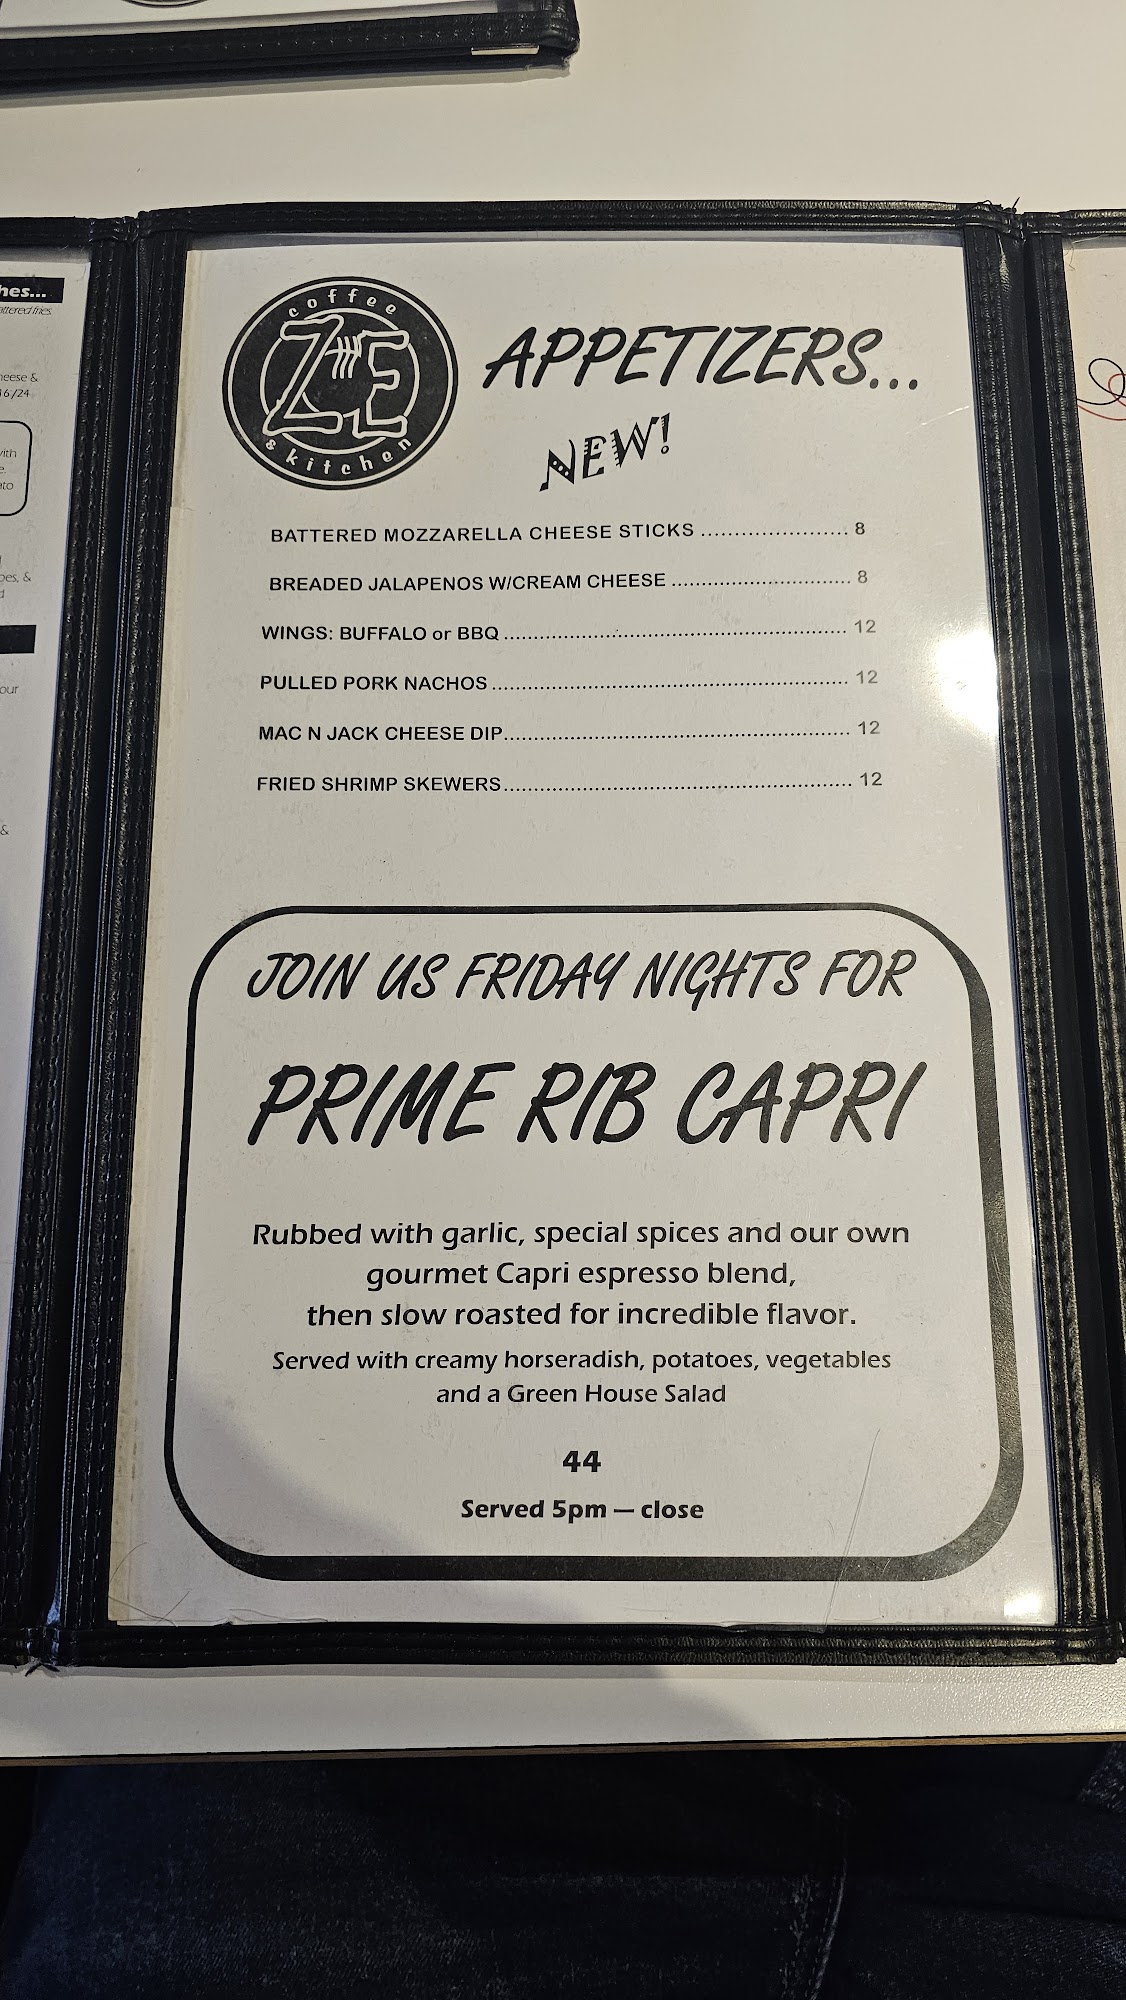 hes...
attered fries
heese &
16/24
with
e.
ato
pes, &
d
our
&
coffee
ZE
& kitchen
APPETIZERS...
NEW!
BATTERED MOZZARELLA CHEESE STICKS ........................ 8
BREADED JALAPENOS W/CREAM CHEESE .............................. 8
WINGS: BUFFALO or BBQ .......................................................... 12
PULLED PORK NACHOS ............................................................ 12
MAC N JACK CHEESE DIP.......................................................... 12
FRIED SHRIMP SKEWERS.......................................................... 12
JOIN US FRIDAY NIGHTS FOR
PRIME RIB CAPRI
Rubbed with garlic, special spices and our own
gourmet Capri espresso blend,
then slow roasted for incredible flavor.
Served with creamy horseradish, potatoes, vegetables
and a Green House Salad
44
Served 5pm — close